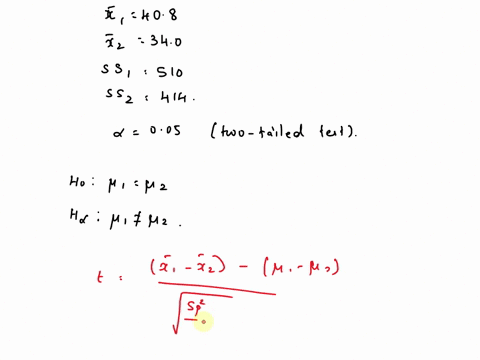 x̄₁ = 40.8
x̄₂ = 34.0
SS₁ = 510
SS₂ = 414.
α = 0.05 (two-tailed test).
H₀: μ₁ = μ₂
Hα: μ₁ ≠ μ₂.
t = (x̄₁ - x̄₂) - (μ₁ - μ₂)
√ Sp²